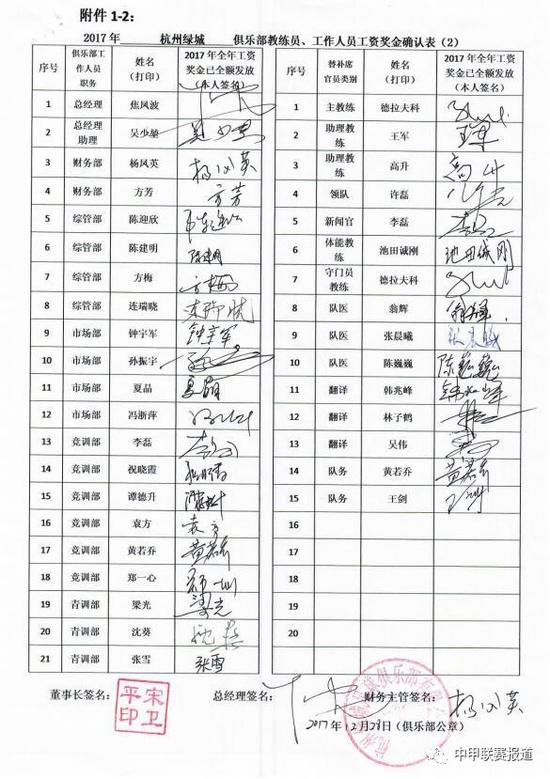 附件 1-2：
2017 年 杭州绿城 俱乐部教练员、工作人员工资奖金确认表（2）
序号 俱乐部工作人员职务 姓名（打印） 2017 年全年工资奖金已全额发放（本人签名）
1 总经理 焦凤波
2 总经理助理 吴少堃
3 财务部 杨凤英 杨凤英
4 财务部 方芳 方芳
5 综管部 陈迎欣
6 综管部 陈建明 陈建明
7 综管部 方梅 方梅
8 综管部 连瑞晓 连瑞晓
9 市场部 钟宇军 钟宇军
10 市场部 孙振宇
11 市场部 夏品 夏品
12 市场部 冯浙萍
13 竞训部 李磊
14 竞训部 祝晓霞
15 竞训部 谭德升
16 竞训部 袁方 袁方
17 竞训部 黄若乔 黄若乔
18 竞训部 郑一心
19 青训部 梁光 梁光
20 青训部 沈葵 沈葵
21 青训部 张雪 张雪
序号 替补席官员类别 姓名（打印） 2017 年全年工资奖金已全额发放（本人签名）
1 主教练 德拉夫科
2 助理教练 王军 王军
3 助理教练 高升 高升
4 领队 许磊
5 新闻官 李磊
6 体能教练 池田诚刚 池田诚刚
7 守门员教练 德拉夫科
8 队医 翁辉 翁辉
9 队医 张晨曦 张晨曦
10 队医 陈巍巍 陈巍巍
11 翻译 韩兆峰 韩兆峰
12 翻译 林子鹤
13 翻译 吴伟
14 队务 黄若乔 黄若乔
15 队务 王剑 王剑
16
17
18
19
20
董事长签名： 宋卫平印 总经理签名： 财务主管签名： 杨凤英
2017年12月28日（俱乐部公章）
中甲联赛报道